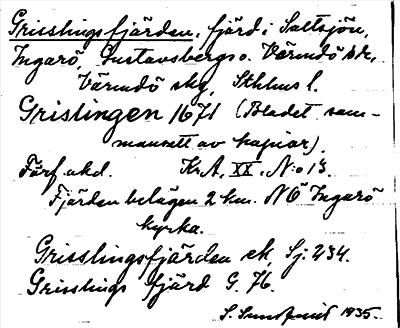 Grisslingsfjärden, fjärd i Saltsjön,
Ingarö, Gustavsbergs o. Värmdö sdr,
Värmdö skg, Sthlms l.
Grislingen 1671 (Bladet sam-
mansatt av kopior).
Förf. okd. Kr.A. XX. N:o 13.
Fjärden belägen 2 km. NÖ Ingarö
kyrka.
Grisslingsfjärden ek, Sj. 234.
Grisslings fjärd G. 76.
S. 1935.